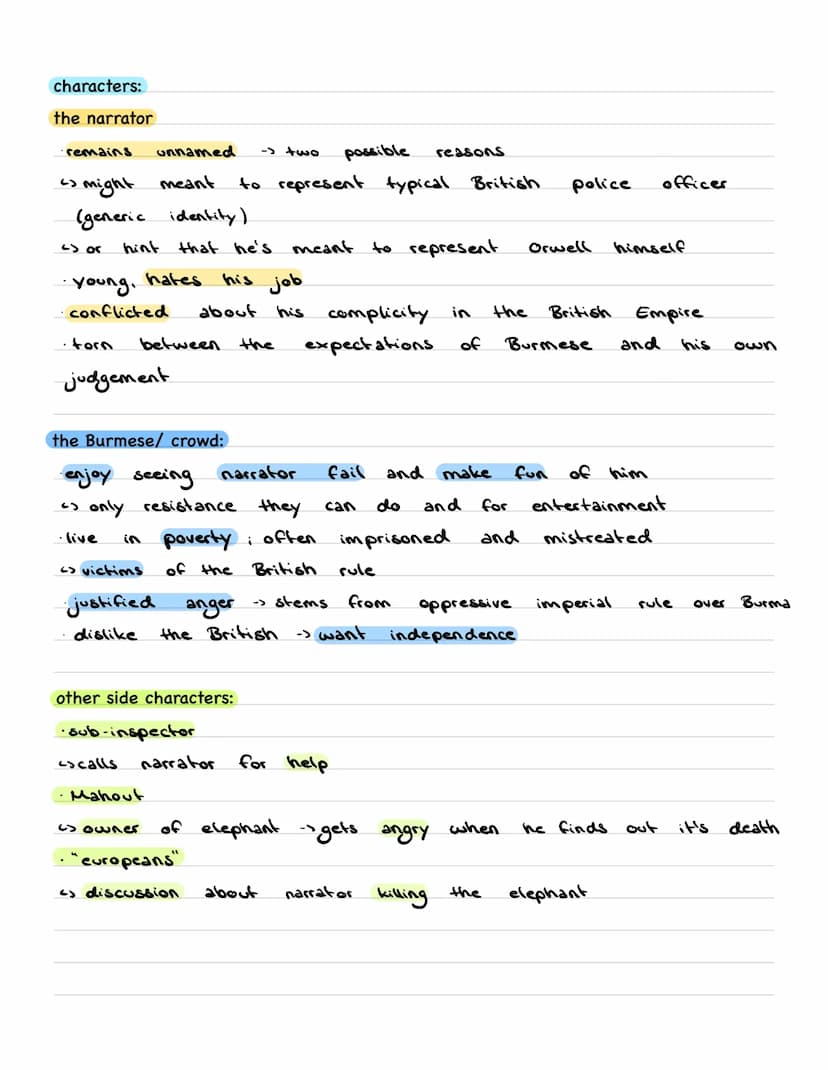 characters:
the narrator
· remains unnamed -> two possible reasons
↳ might meant to represent typical British police officer
(generic identity)
↳ or hint that he's meant to represent Orwell himself
· young, hates his job
· conflicted about his complicity in the British Empire
· torn between the expectations of Burmese and his own
judgement
the Burmese/ crowd:
· enjoy seeing narrator fail and make fun of him
↳ only resistance they can do and for entertainment
· live in poverty ; often imprisoned and mistreated
↳ victims of the British rule
· justified anger -> stems from oppressive imperial rule over Burma
· dislike the British -> want independence
other side characters:
· sub-inspector
↳ calls narrator for help
· Mahout
↳ owner of elephant -> gets angry when he finds out it's death
· "europeans"
↳ discussion about narrator killing the elephant